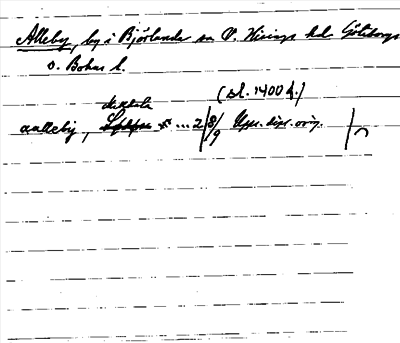 Alleby, by i Björlanda sn V. Hisings hd. Göteborgs
o. Bohus l.
(sl. 1400 t.)
aalleby, ... 28/9 Upps. dipl. orig.